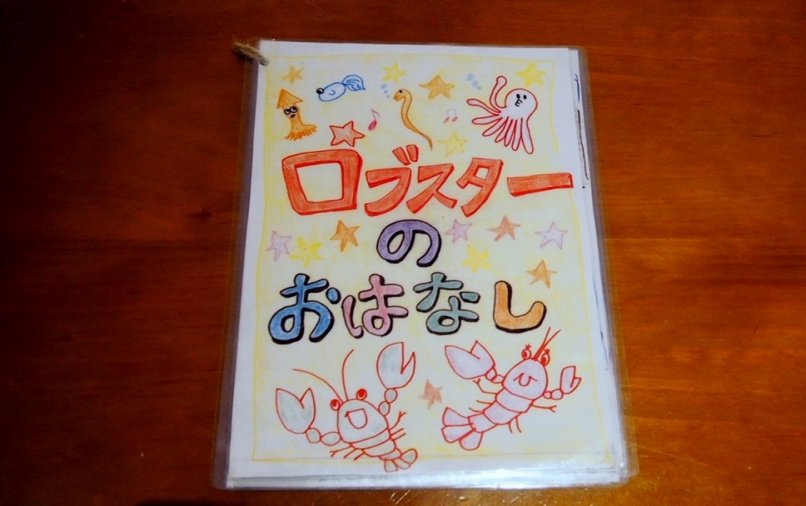 ロブスター
の
おはなし